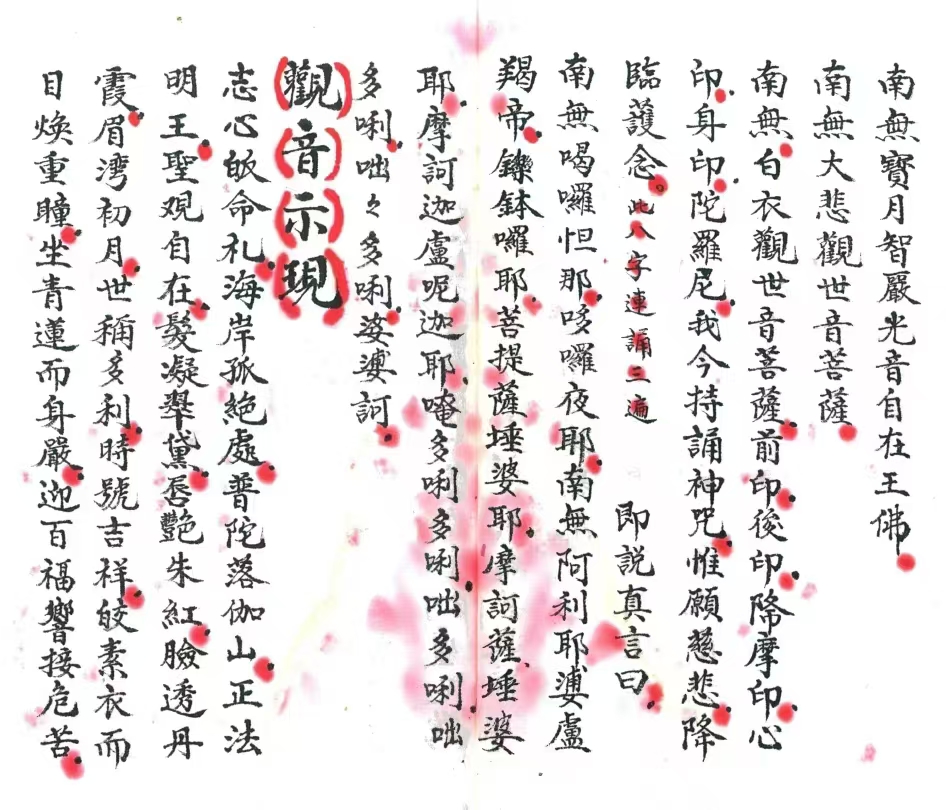 南無寶月智嚴光音自在王佛
南無大悲觀世音菩薩
南無白衣觀世音菩薩前印後印降摩印心
印身印陀羅尼我今持誦神咒惟願慈悲降
臨護念此八字連誦三遍 即説真言曰
南無喝囉怛那哆囉夜耶南無阿利耶婆盧
羯帝鑠鉢囉耶菩提薩埵婆耶摩訶薩埵婆
耶摩訶迦盧呢迦耶唵多唎多唎咄多唎咄
多唎咄々多唎娑婆訶
觀音示現
志心皈命礼海岸孤絕處普陀落伽山正法
明王聖观自在髮凝翠黛唇艷朱紅臉透丹
霞眉灣初月世稱多利時號吉祥皎素衣而
目煥重瞳坐青蓮而身嚴迎百福響接危苦